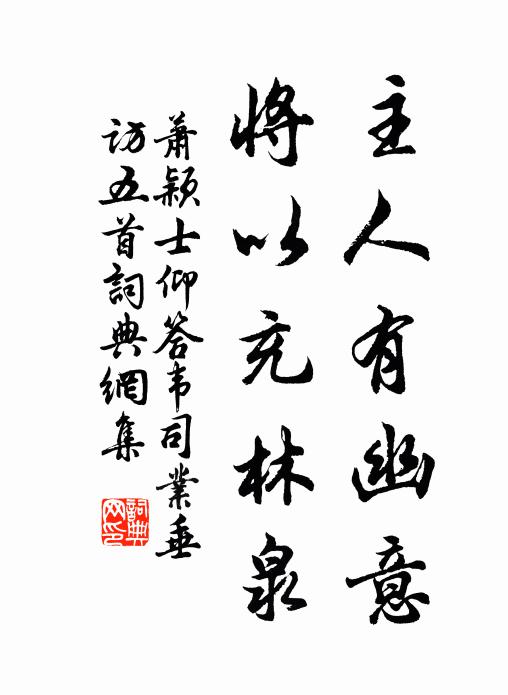 主人有幽意
將以充林泉
蕭穎士仰答韦司業垂
訪五首詞典網集
詞典网印